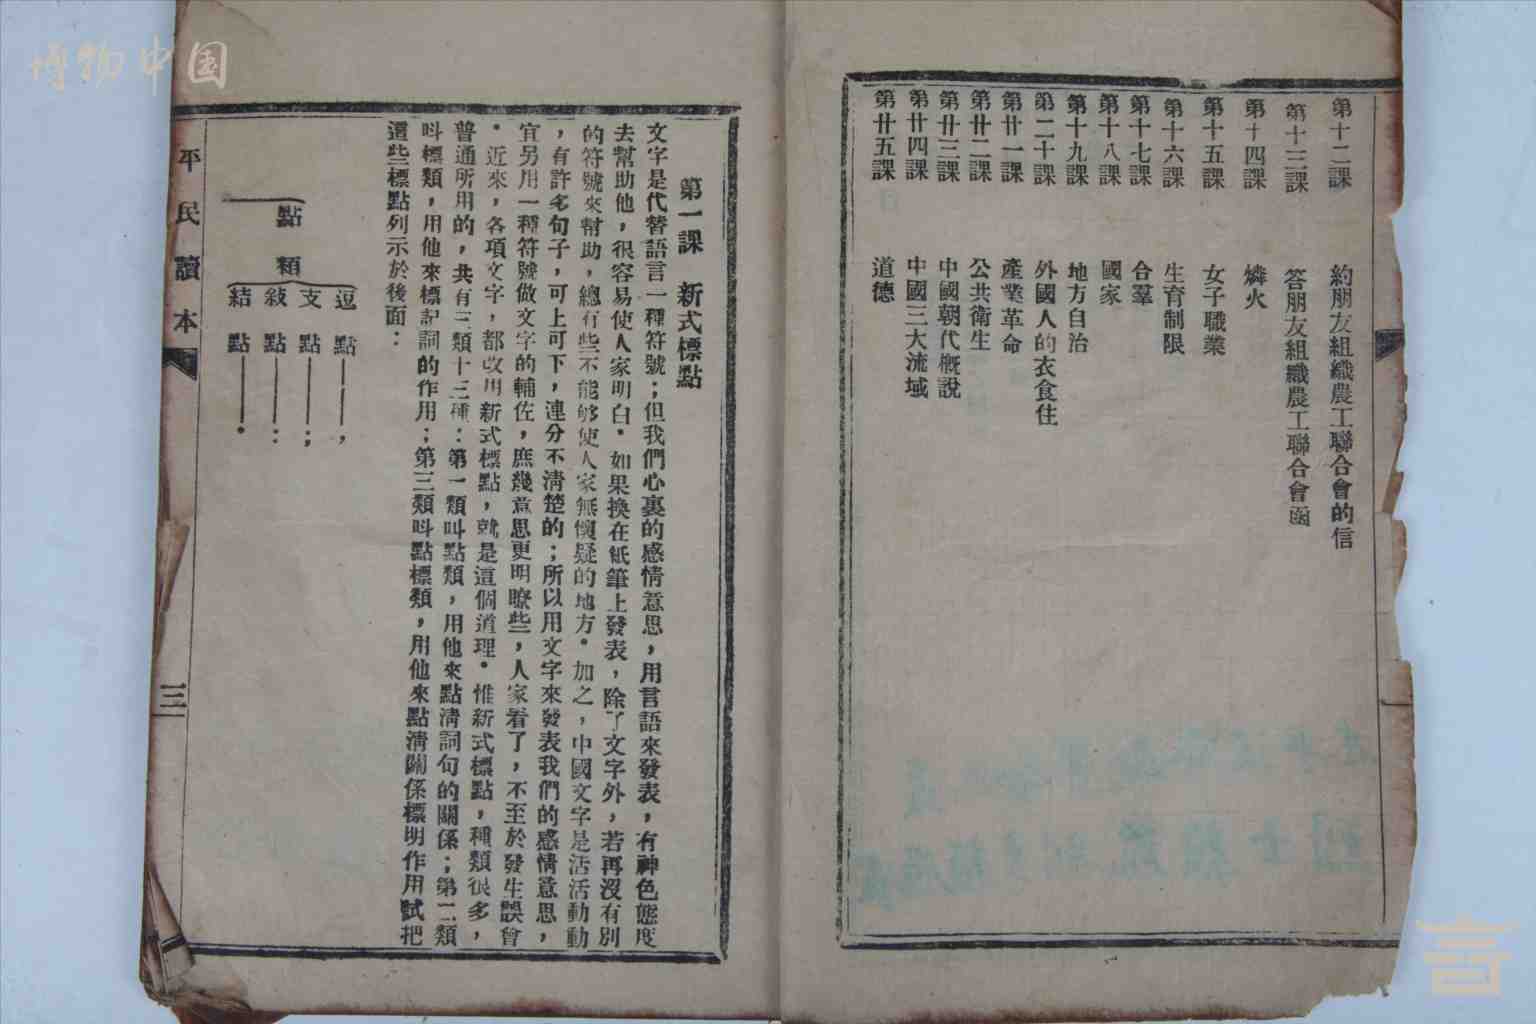 博物中国
第十二課 約朋友組織農工聯合會的信
第十三課 答朋友組織農工聯合會函
第十四課 燐火
第十五課 女子職業
第十六課 生育制限
第十七課 合羣
第十八課 國家
第十九課 地方自治
第二十課 外國人的衣食住
第廿一課 產業革命
第廿二課 公共衛生
第廿三課 中國朝代概說
第廿四課 中國三大流域
第廿五課 道德
第一課 新式標點
文字是代替語言一種符號；但我們心裏的感情意思，用言語來發表，有神色態度
去幫助他，很容易使人家明白．如果換在紙筆上發表，除了文字外，若再沒有別
的符號來幫助，總有些不能够使人家無懷疑的地方．加之，中國文字是活活動動
，有許多句子，可上可下，連分不清楚的；所以用文字來發表我們的感情意思，
宜另用一種符號做文字的輔佐，庶幾意思更明瞭些，人家看了，不至於發生誤會
．近來，各項文字，都改用新式標點，就是這個道理．惟新式標點，種類很多，
普通所用的，共有三類十三種：第一類叫點類，用他來點清詞句的關係；第二類
叫標類，用他來標記詞的作用；第三類叫點標類，用他來點清關係標明作用試把
這些標點列示於後面：
點類
逗點——，
支點——；
敍點——：
結點——．
平民讀本
三